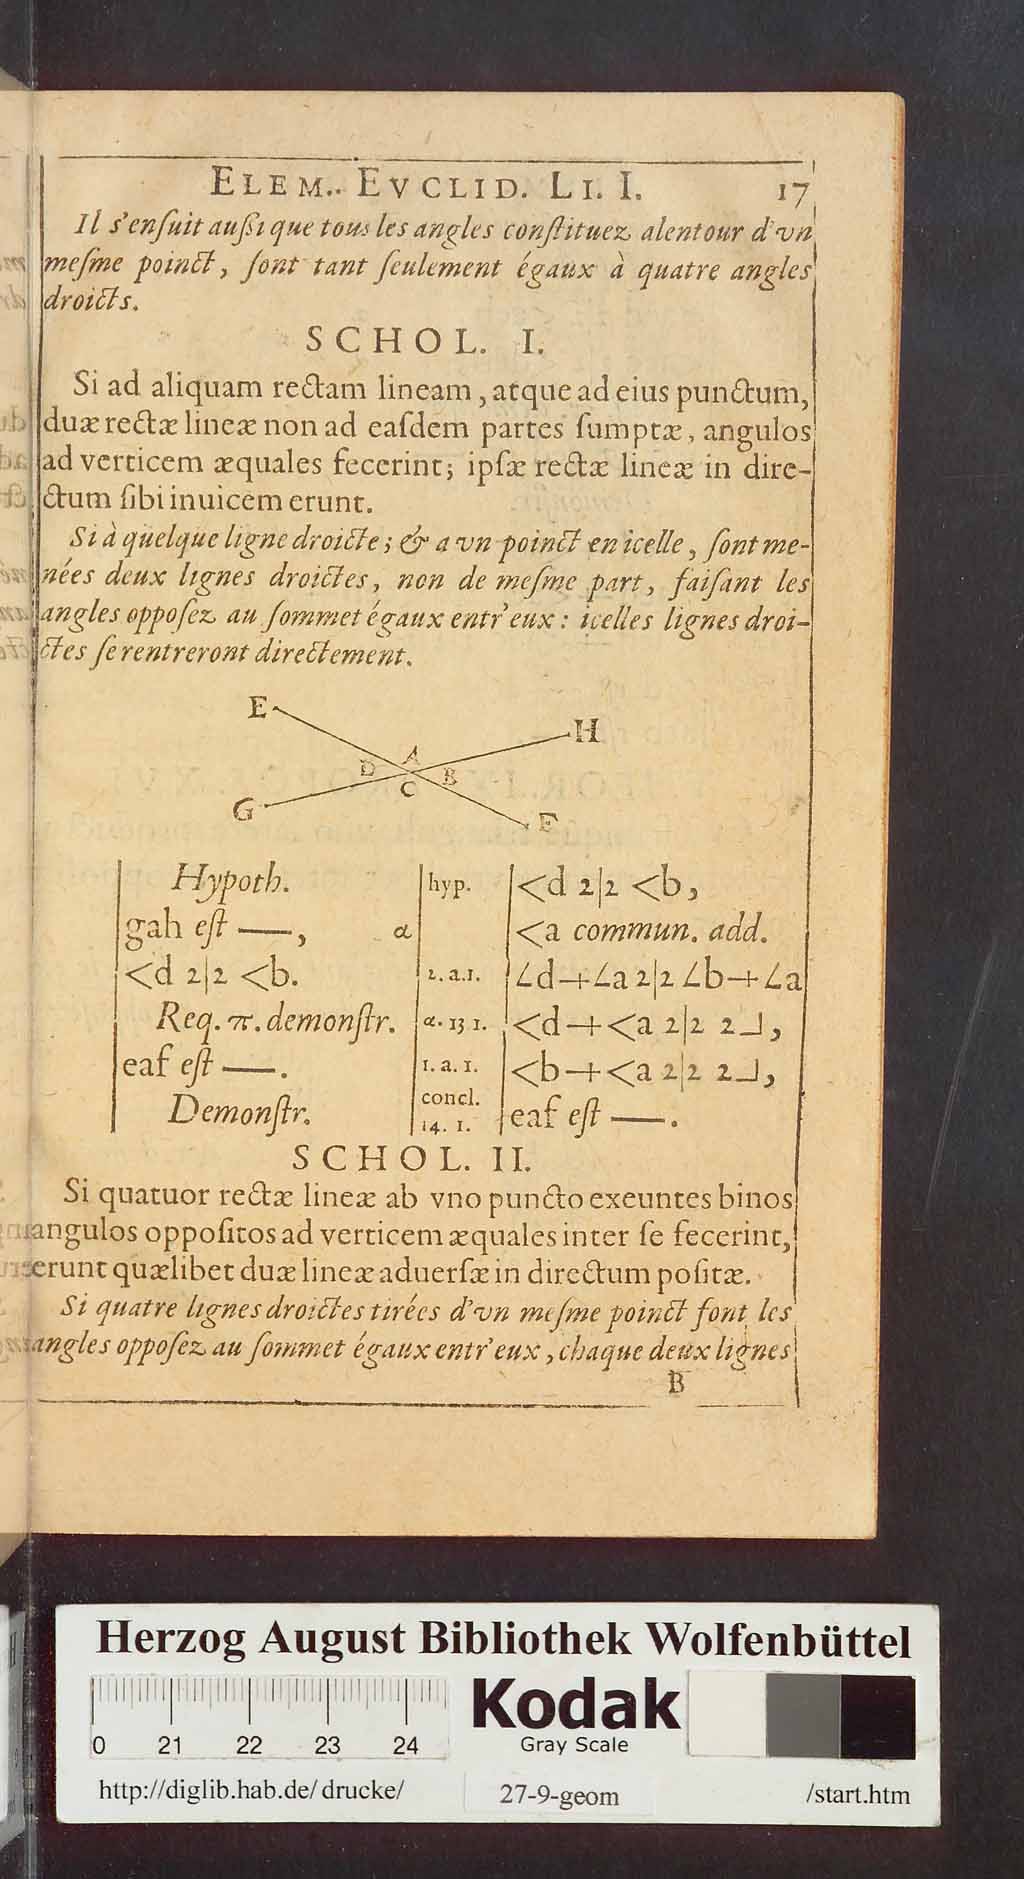 ELEM.. EVCLID. LI. I. 17
Il s'enſuit außi que tous les angles conſtituez alentour d'vn
meſme poinct, ſont tant ſeulement égaux à quatre angles
droicts.
SCHOL. I.
Si ad aliquam rectam lineam, atque ad eius punctum,
duæ rectæ lineæ non ad eaſdem partes ſumptæ, angulos
ad verticem æquales fecerint; ipſæ rectæ lineæ in dire-
ctum ſibi inuicem erunt.
Si à quelque ligne droicte; & a vn poinct en icelle, ſont me-
nées deux lignes droictes, non de meſme part, faiſant les
angles oppoſez au ſommet égaux entr'eux: icelles lignes droi-
ctes ſe rentreront directement.
E
H
A
D
B
C
G
F
Hypoth.
gah eſt —,
<d 2|2 <b.
Req. π. demonſtr.
eaf eſt —.
Demonſtr.
hyp. <d 2|2 <b,
α <a commun. add.
2. a. 1. ∠d+∠a 2|2 ∠b+∠a
α. 13 1. <d+<a 2|2 2⅃,
1. a. 1. <b+<a 2|2 2⅃,
concl.
14. 1. eaf eſt —.
SCHOL. II.
Si quatuor rectæ lineæ ab vno puncto exeuntes binos
angulos oppoſitos ad verticem æquales inter ſe fecerint,
erunt quælibet duæ lineæ aduerſæ in directum poſitæ.
Si quatre lignes droictes tirées d'vn meſme poinct font les
angles oppoſez au ſommet égaux entr'eux, chaque deux lignes
B
Herzog August Bibliothek Wolfenbüttel
0 21 22 23 24
Kodak
Gray Scale
http://diglib.hab.de/drucke/ 27-9-geom /start.htm